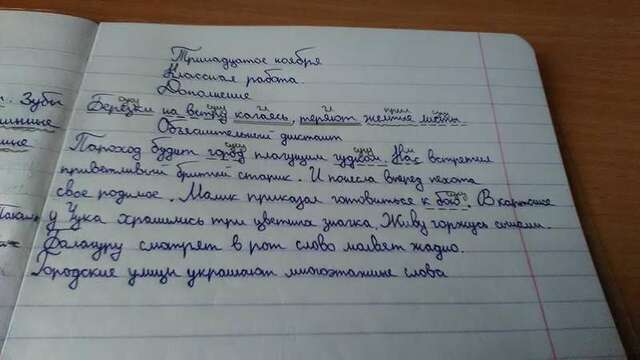 Тринадцатое ноября
Классная работа.
Дополнение
Берёзки на ветру качаясь, теряют жёлтые листы.
Объяснительный диктант
Пароход будит город плачущим гудком. Нас встретил
приветливый бритый старик. И понесла вперед пехота
свое родимое. Малик приказал готовиться к бою. В картошке
у Чука хранились три цветных значка. Живу горжусь сынами.
Балагуру смотрят в рот слово ловят жадно.
Городские улицы украшают многоэтажные слова
сущ
сущ
прил
сущ
сущ
сущ
сущ
. Зубы